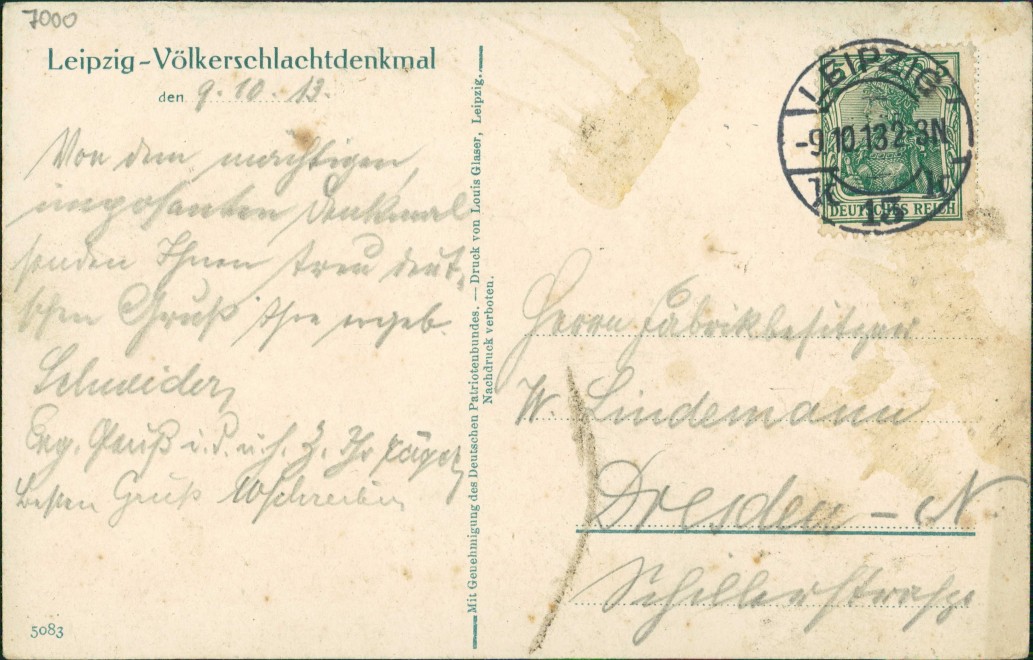 7000
Leipzig-Völkerschlachtdenkmal
den 9. 10. 13.
Von dem mächtigen,
imposanten Denkmal
senden Ihnen treu deut-
schen Gruß Ihre ergeb.
Schneider,
Gruß i. d.
besten Gruß
5083
Mit Genehmigung des Deutschen Patriotenbundes. — Druck von Louis Glaser, Leipzig.
Nachdruck verboten.
LEIPZIG
-9.10.13 2-3N
13
5
DEUTSCHES REICH
Herrn Fabrikbesitzer
W. Lindemann
Dresden - N.
Schillerstrasse